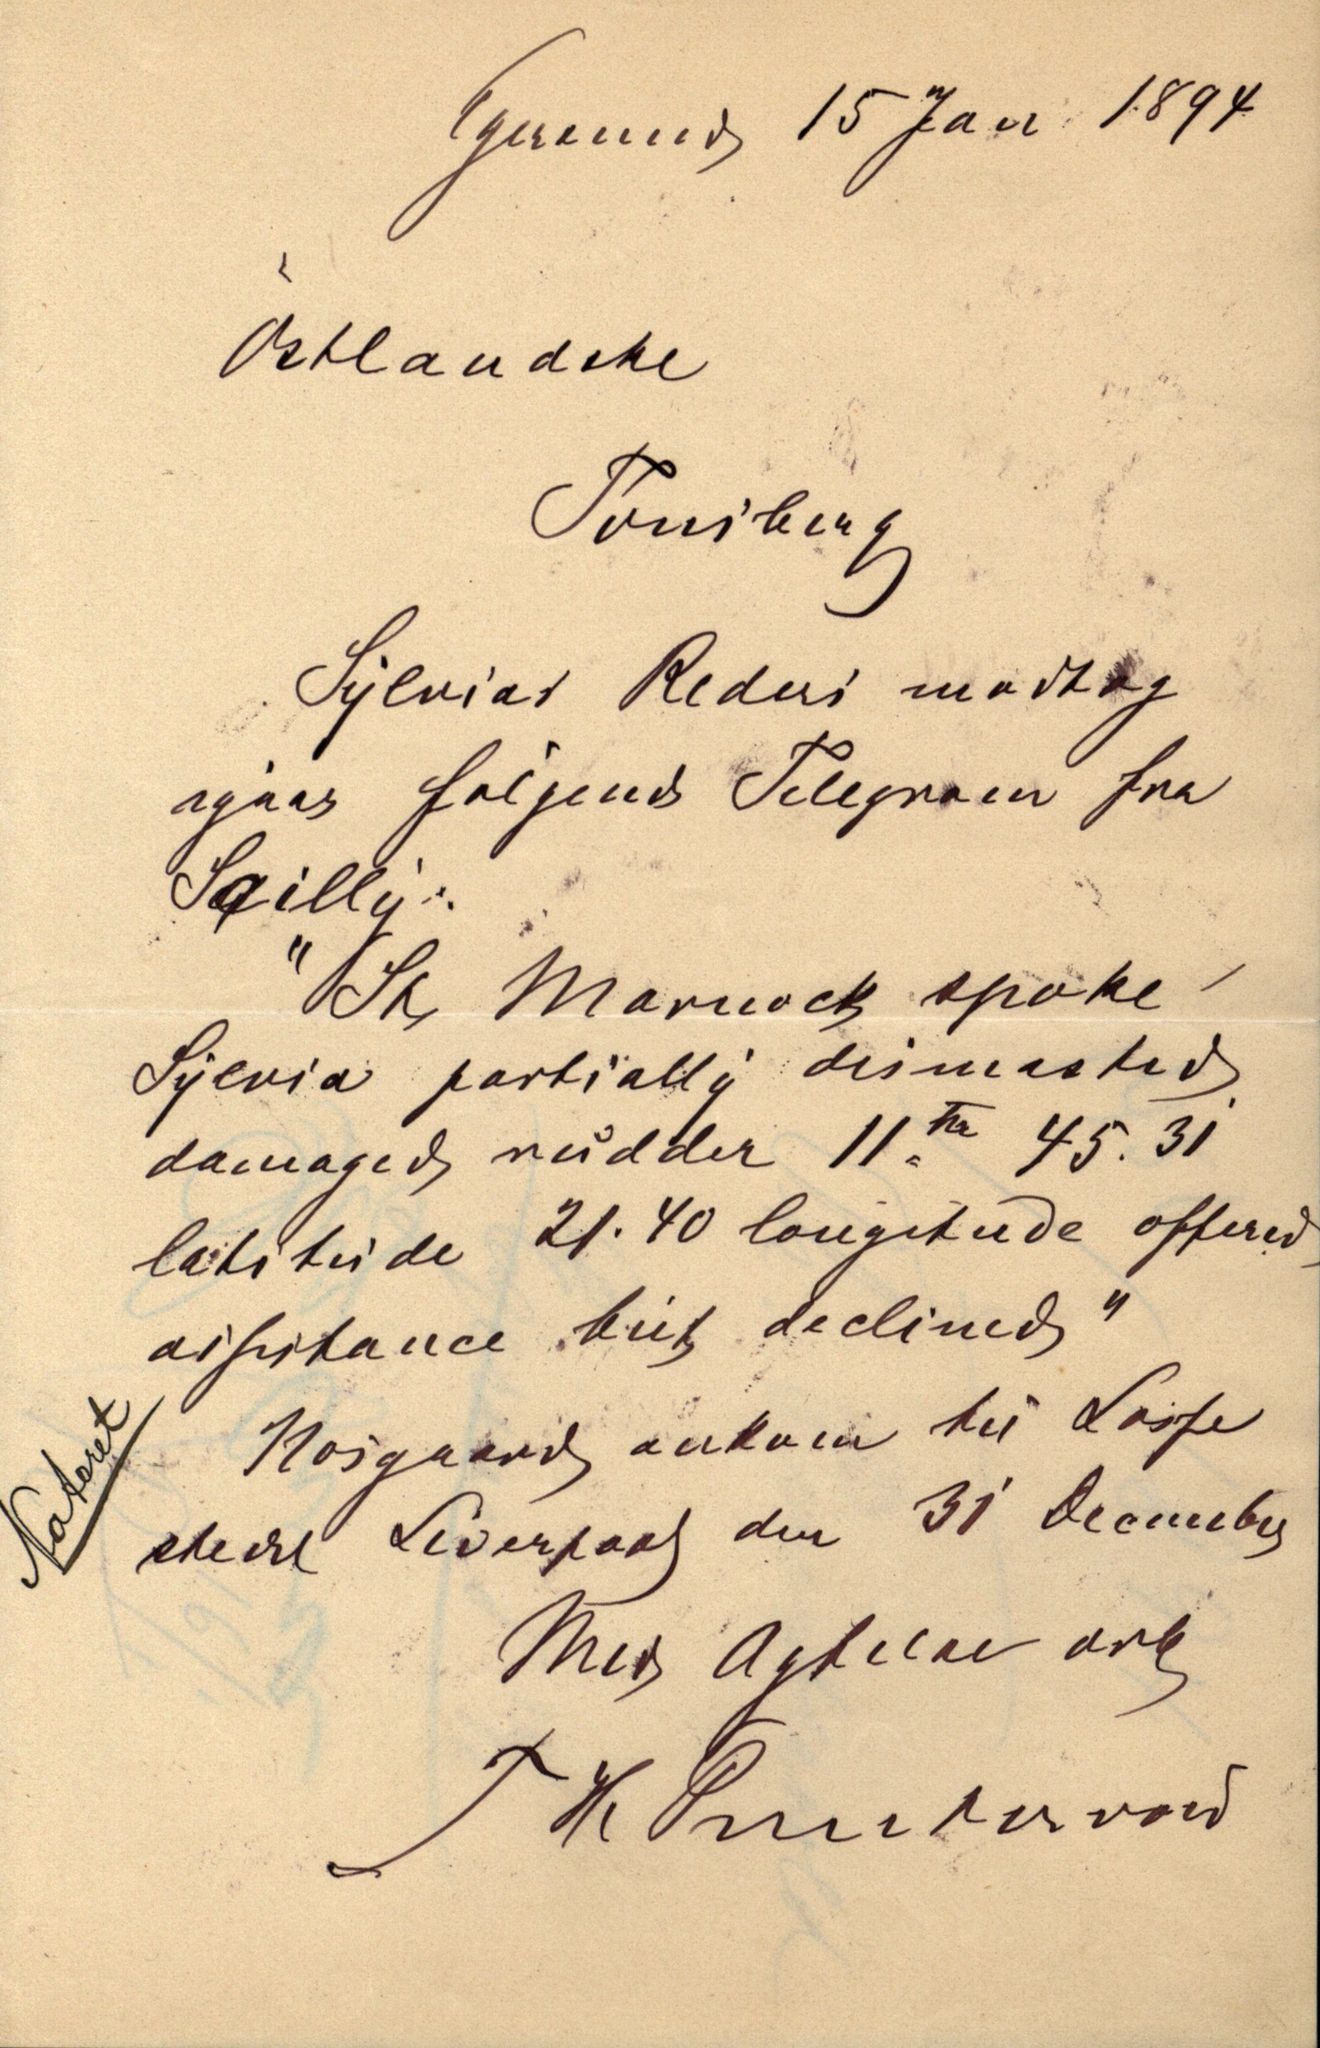 Egersund 15 Jan 1894
Östlandske
Tönsberg
Sylvias Rederi modtog
igaar følgende Telegram fra
Scilly:
"St Marnock spoke
Sylvia partially dismasted
damaged rudder 11th 45.31
latitude 21.40 longitude offered
assistance but declined"
Kosgaard ankom til Losse
stedet Liverpool den 31 December
Med Agtelse erb
T H Puntervold
Noteret